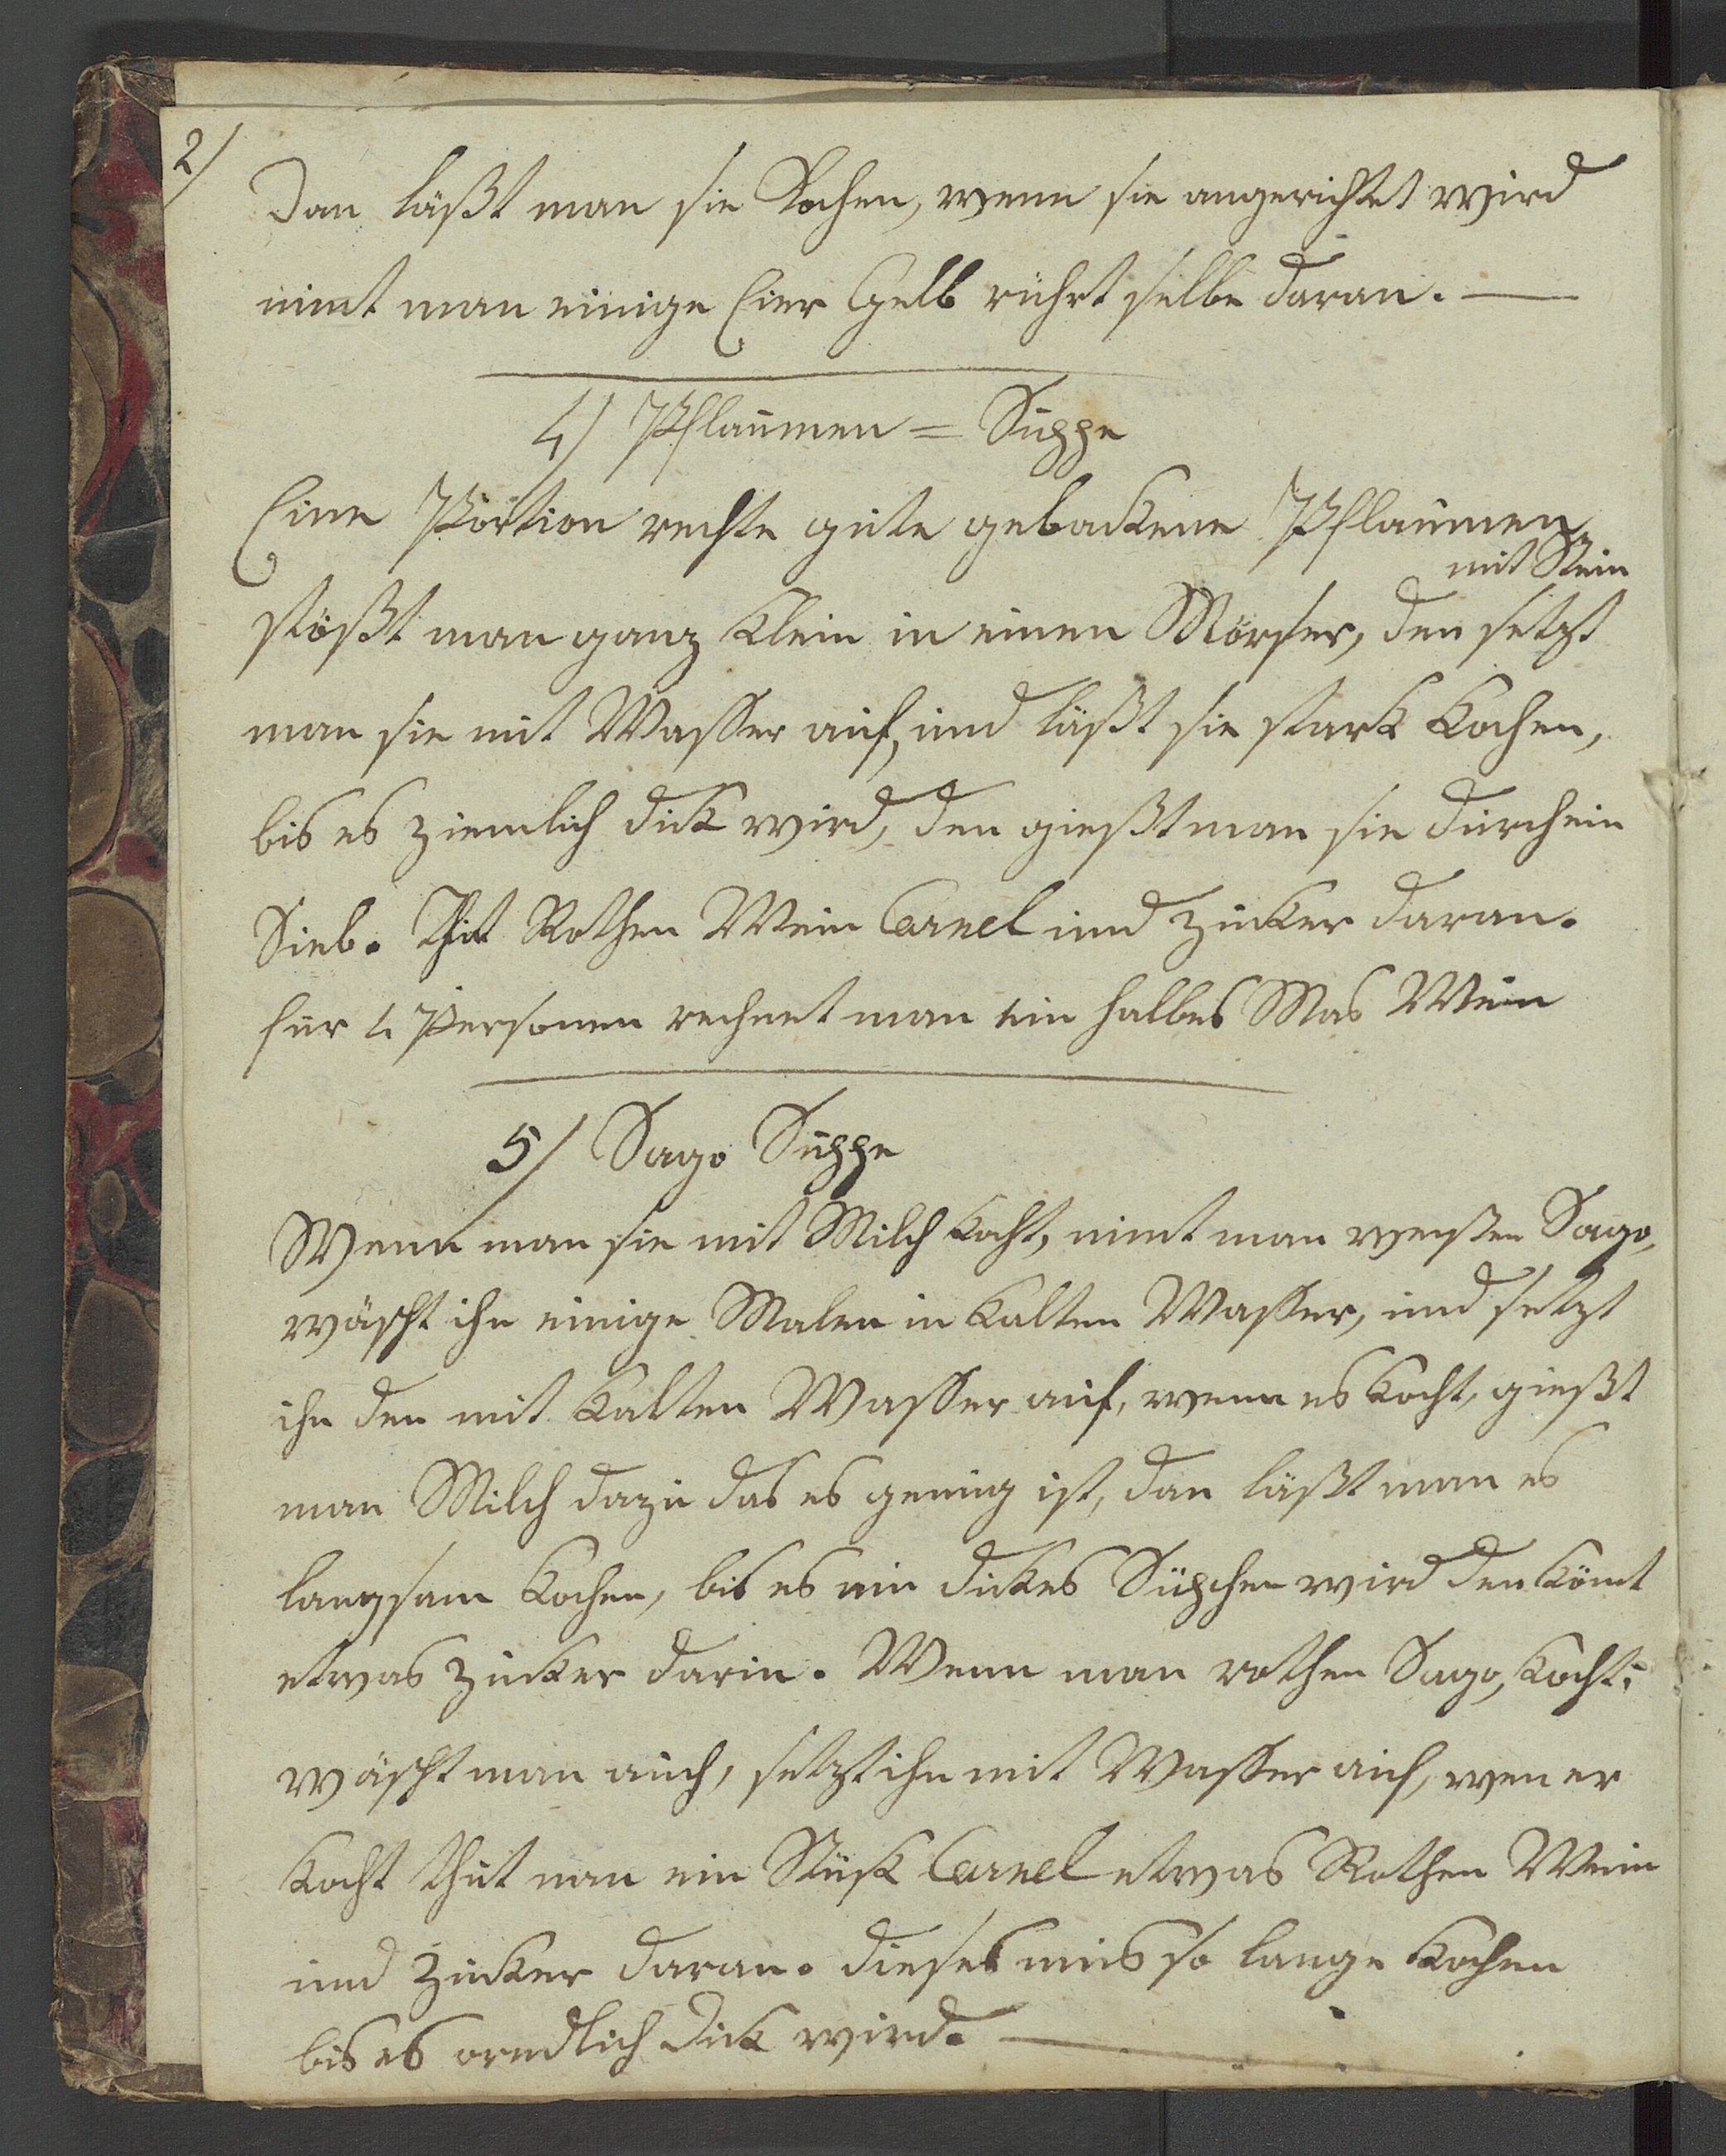 2/
Dan läßt man sie Kochen, wenn sie angerichtet wird
nimt man einige Eier Gelb rührt selbe daran. —
4/ Pflaumen = Suppe
Eine Portion rechte gute gebackene Pflaumen
mit Stein
stößt man ganz Klein in einen Mörser, den setzt
man sie mit Wasser auf, und läßt sie stark Kochen,
bis es ziemlich dick wird, den gießt man sie durch ein
Sieb. Thut Rothen Wein Canel und Zucker daran.
für 4 Personen rechnet man ein halbes Mas Wein
5/ Sago Suppe
Wenn man sie mit Milch kocht, nimt man weißen Sago,
wäscht ihn einige Malen in Kalten Wasser, und setzt
ihn den mit Kalten Wasser auf, wenn es Kocht, gießt
man Milch dazu das es genug ist, dan läßt man es
langsam Kochen, bis es ein dickes Süpchen wird den kömt
etwas Zucker darin. Wenn man rothen Sago, Kocht:
wäscht man auch, setzt ihn mit Wasser auf, wen er
Kocht thut man ein Stük Canel etwas Rothen Wein
und Zucker daran. dieses mus so lange Kochen
bis es orndlich dick wird. —